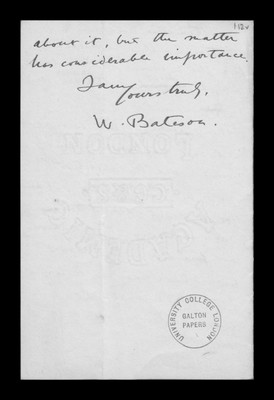 about it, but the matter
has considerable importance.
I am
Yours truly,
W. Bateson.
UNIVERSITY COLLEGE LONDON
GALTON
PAPERS